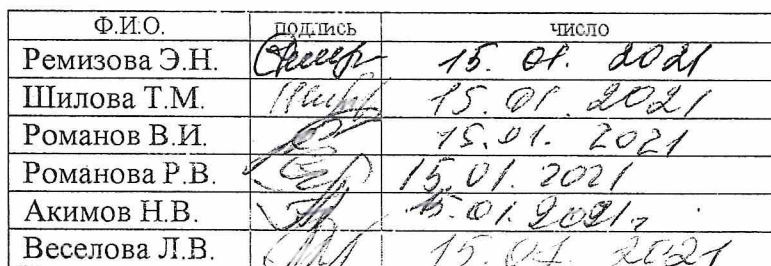 Ф.И.О. подпись число
Ремизова Э.Н. 15. 01. 2021
Шилова Т.М. 15. 01 2021
Романов В.И. 15.01. 2021
Романова Р.В. 15.01. 2021
Акимов Н.В. 15.01.2021г
Веселова Л.В. 15.01. 2021